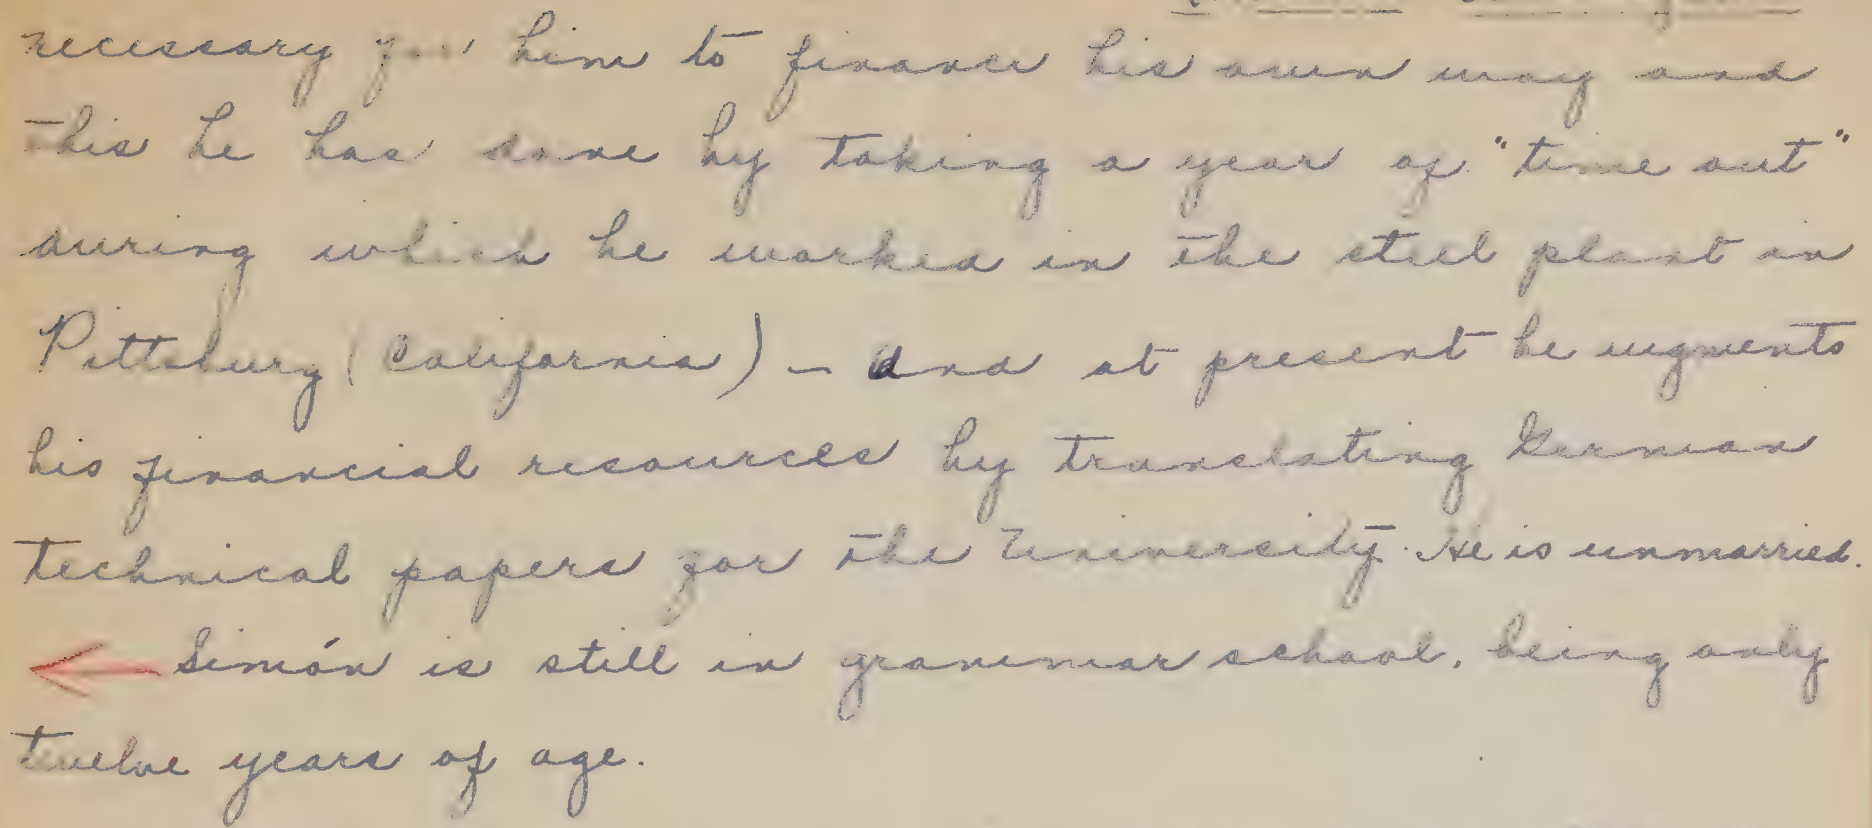 necessary for him to finance his own way and
this he has done by taking a year of "time out"
during which he worked in the steel plant in
Pittsburg (California) - and at present he augments
his financial resources by translating German
technical papers for the University. He is unmarried.
Simón is still in grammar school, being only
twelve years of age.